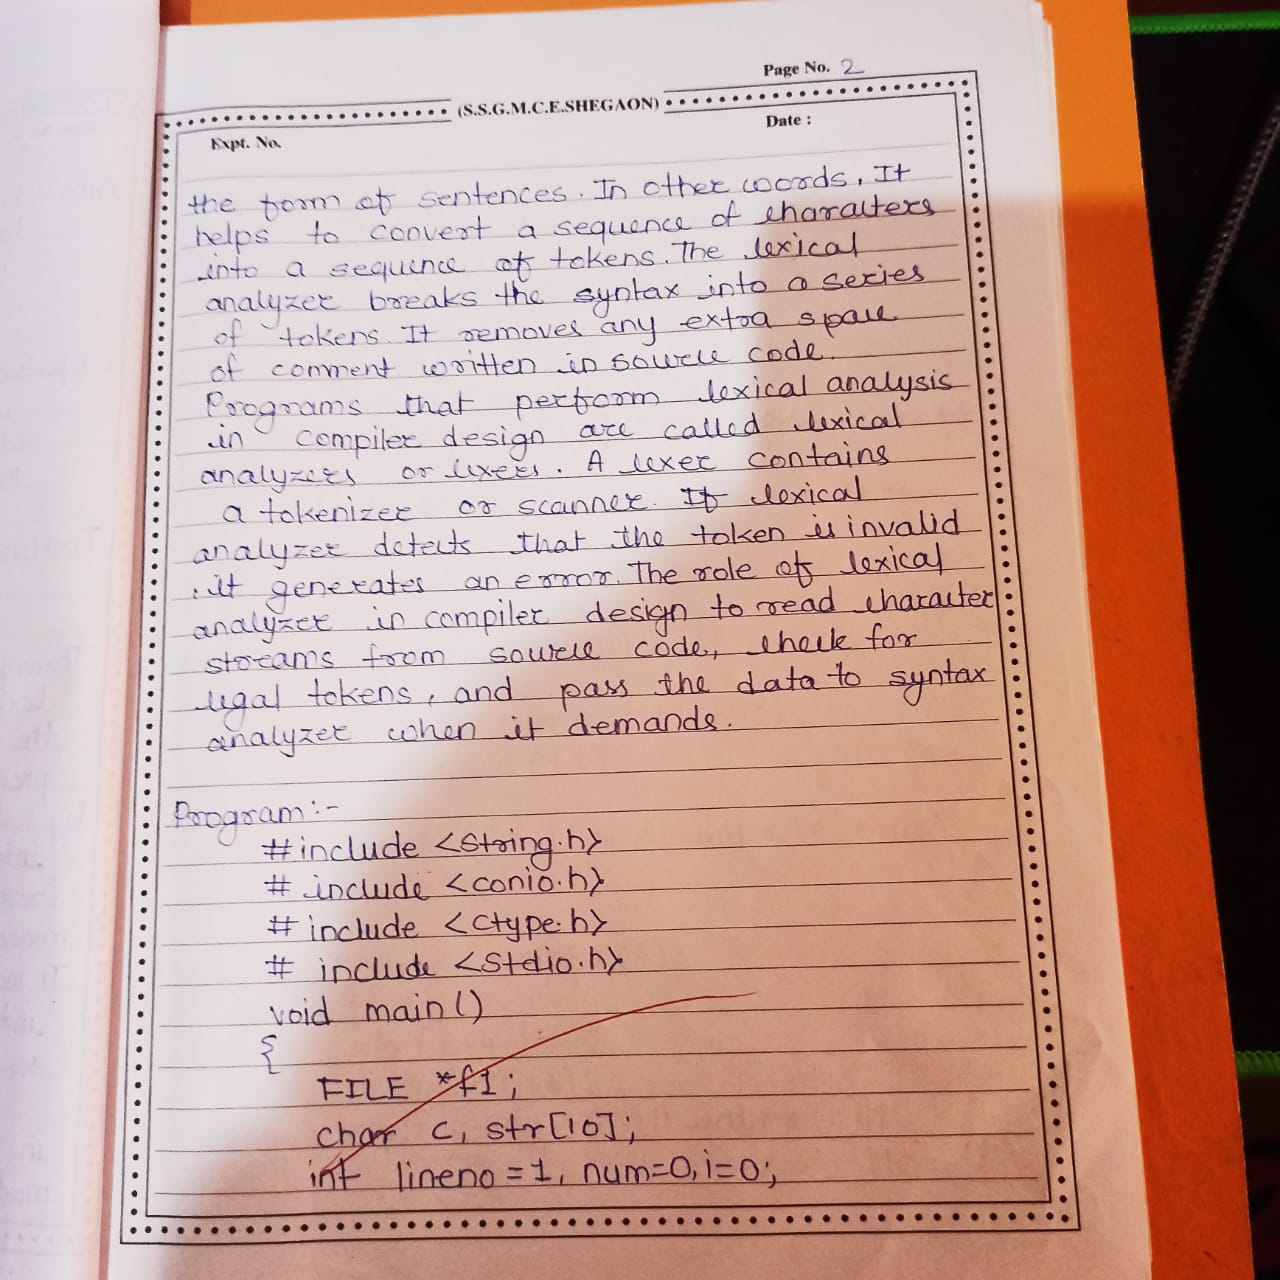 Page No. 2
(S.S.G.M.C.E.SHEGAON)
Expt. No.
Date :
the form of sentences. In other words, It
helps to convert a sequence of characters
into a sequence of tokens. The lexical
analyzer breaks the syntax into a series
of tokens. It removes any extra space
of comment written in source code.
Programs that perform lexical analysis
in compiler design are called lexical
analyzers or lexers. A lexer contains
a tokenizer or scanner. If lexical
analyzer detects that the token is invalid
, it generates an error. The role of lexical
analyzer in compiler design to read character
streams from source code, check for
legal tokens, and pass the data to syntax
analyzer when it demands.
Program:-
#include <string.h>
# include <conio.h>
# include <ctype.h>
# include <stdio.h>
void main()
{
FILE *f1;
char c, str[10];
int lineno=1, num=0,i=0;